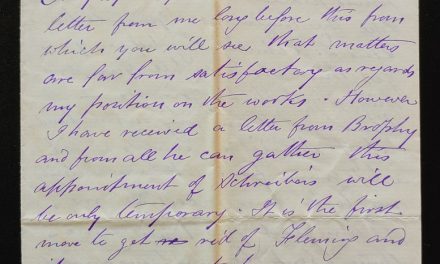 letter from me long before this from
which you will see that matters
are far from satisfactory as regards
my position on the works. However
I have received a letter from Brophy
and from all he can gather this
appointment of Schreibers will
be only temporary. It is the first
move to get rid of Fleming and